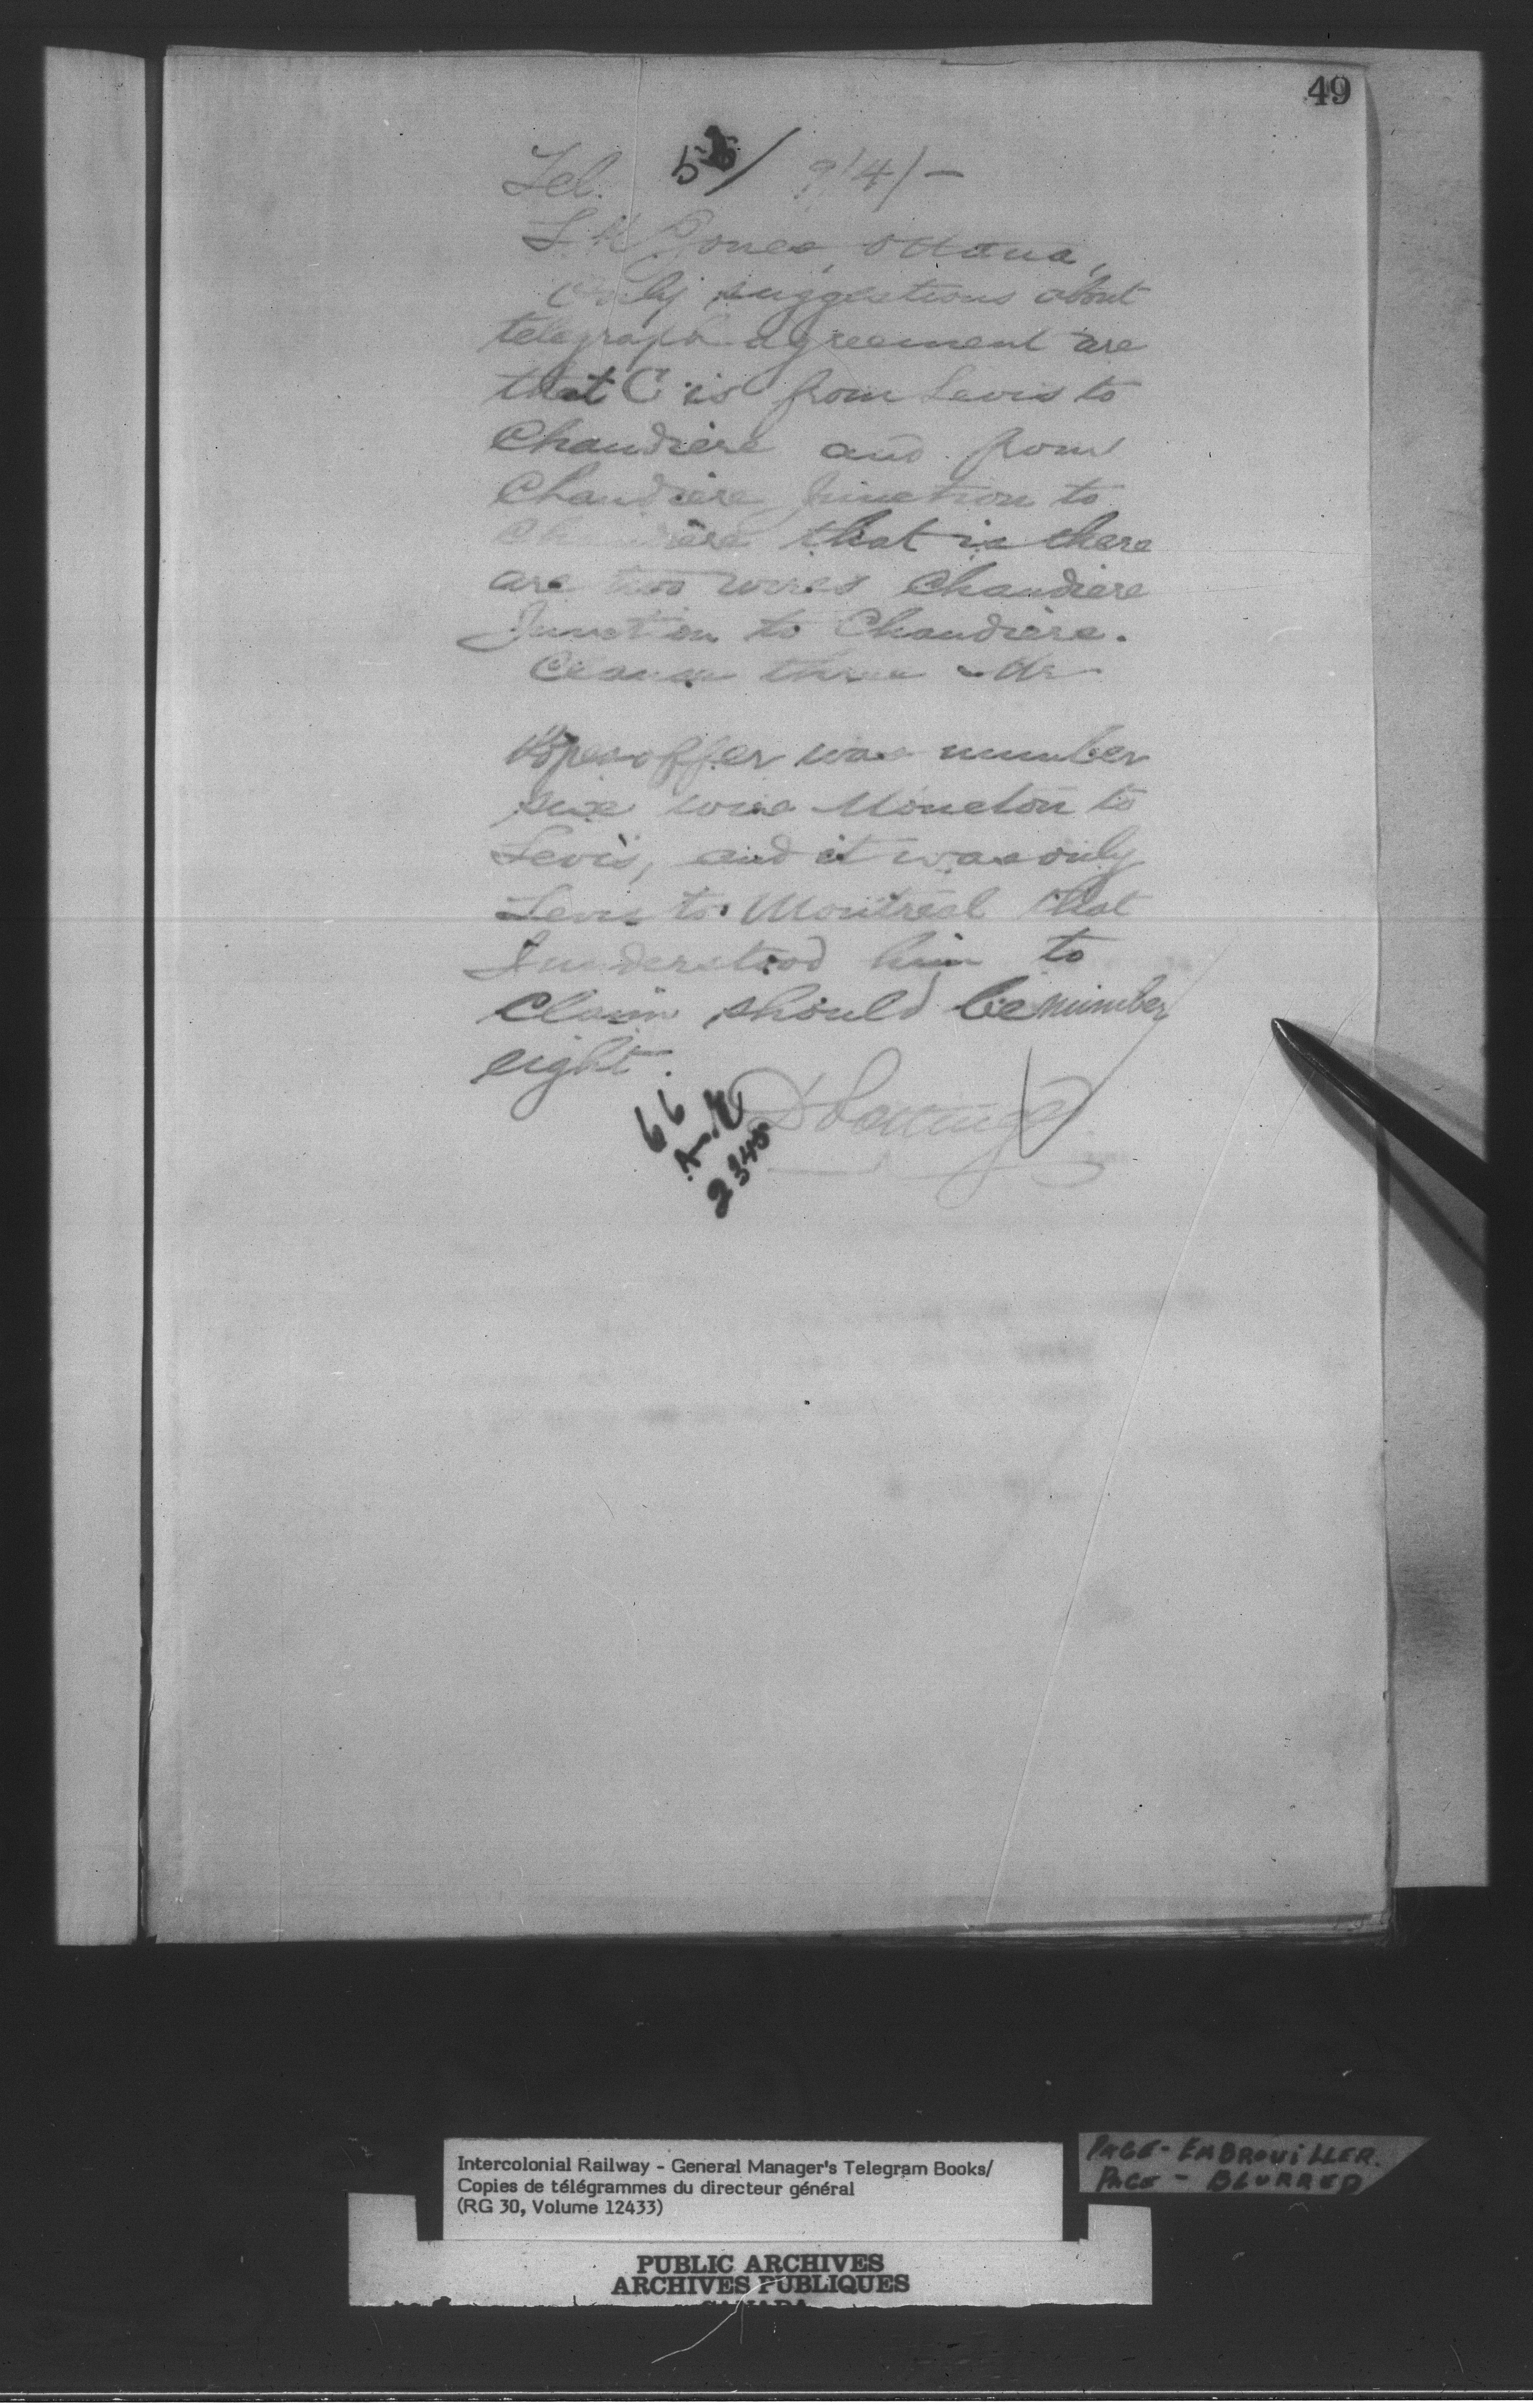 49
Tel. 9/4/-
L K Jones, Ottawa,
Only suggestions about
telegraph agreement are
that C is from Levis to
Chaudiere and from
Chaudiere Junction to
Chaudiere that is there
are two wires Chaudiere
Junction to Chaudiere.
Clause three - Mr
offer was number
six wire Moncton to
Levis, and it was only
Levis to Montreal that
I understood him to
claim should be number
eight.
D Pottinger
66
2345
Intercolonial Railway - General Manager's Telegram Books/
Copies de télégrammes du directeur général
(RG 30, Volume 12433)
PAGE - EMBROUiLLER.
PAGE - BLURRED
PUBLIC ARCHIVES
ARCHIVES PUBLIQUES
CANADA